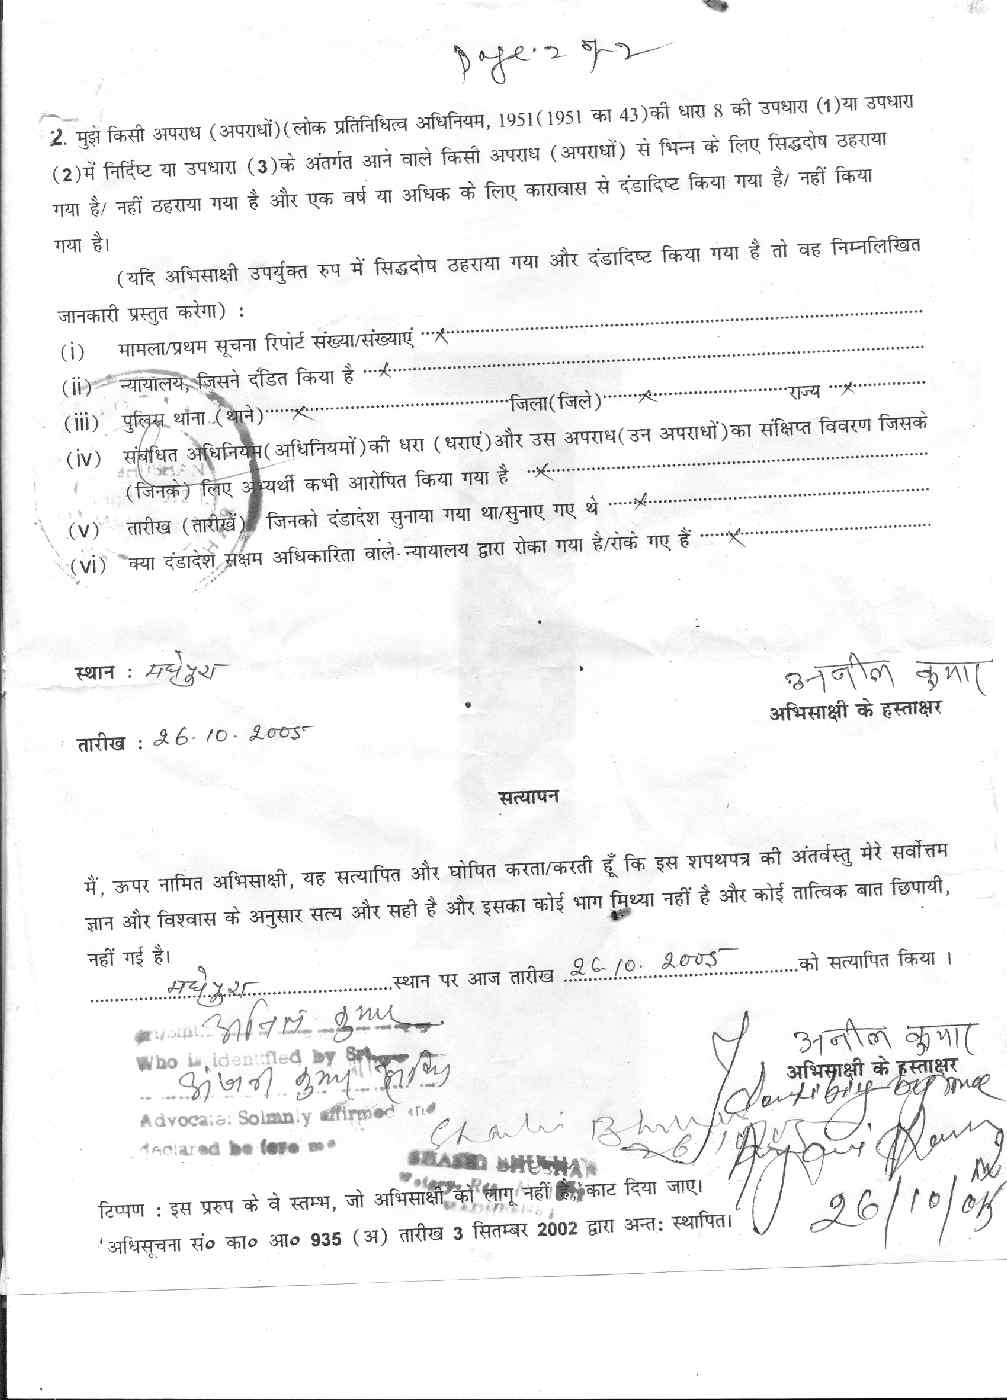 Page. 2 of 2
2. मुझे किसी अपराध (अपराधों)(लोक प्रतिनिधित्व अधिनियम, 1951(1951 का 43)की धारा 8 की उपधारा (1)या उपधारा
(2)में निर्दिष्ट या उपधारा (3)के अंतर्गत आने वाले किसी अपराध (अपराधों) से भिन्न के लिए सिद्धदोष ठहराया
गया है/ नहीं ठहराया गया है और एक वर्ष या अधिक के लिए कारावास से दंडादिष्ट किया गया है/ नहीं किया
गया है।
(यदि अभिसाक्षी उपर्युक्त रुप में सिद्धदोष ठहराया गया और दंडादिष्ट किया गया है तो वह निम्नलिखित
जानकारी प्रस्तुत करेगा) :
(i) मामला/प्रथम सूचना रिपोर्ट संख्या/संख्याएं ...x...
(ii) न्यायालय, जिसने दंडित किया है ...x...
(iii) पुलिस थाना (थाने)...x...जिला(जिले)...x...राज्य...x...
(iv) संबंधित अधिनियम(अधिनियमों)की धरा (धराएं)और उस अपराध(उन अपराधों)का संक्षिप्त विवरण जिसके
(जिनके) लिए अभ्यर्थी कभी आरोपित किया गया है ...x...
(v) तारीख (तारीखें) जिनको दंडादेश सुनाया गया था/सुनाए गए थे ...x...
(vi) क्या दंडादेश सक्षम अधिकारिता वाले न्यायालय द्वारा रोका गया है/रोके गए हैं ...x...
स्थान : मधेपुरा
अनील कुमार
अभिसाक्षी के हस्ताक्षर
तारीख : 26.10.2005
सत्यापन
मैं, ऊपर नामित अभिसाक्षी, यह सत्यापित और घोषित करता/करती हूँ कि इस शपथपत्र की अंतर्वस्तु मेरे सर्वोत्तम
ज्ञान और विश्वास के अनुसार सत्य और सही है और इसका कोई भाग मिथ्या नहीं है और कोई तात्विक बात छिपायी,
नहीं गई है।
मधेपुरा...स्थान पर आज तारीख 26/10.2005...को सत्यापित किया ।
अनिल कुमार
अनील कुमार
Who is identified by Sri
अभिसाक्षी के हस्ताक्षर
Advocate: Solmnly affirmed and
declared before me
SHASHI BHUSHAN
26/10/05
टिप्पण : इस प्ररुप के वे स्तम्भ, जो अभिसाक्षी को लागू नहीं है, काट दिया जाए।
'अधिसूचना सं० का० आ० 935 (अ) तारीख 3 सितम्बर 2002 द्वारा अन्त: स्थापित।